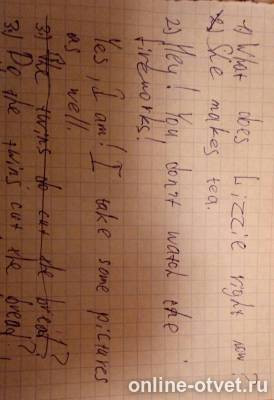 1) What does Lizzie right now?
2) She makes tea.
2) Hey! You don't watch the
fireworks!
Yes, I am! I take some pictures
as well.
3) The twins do cut the bread?
3) Do the twins cut the bread?
online-otvet.ru